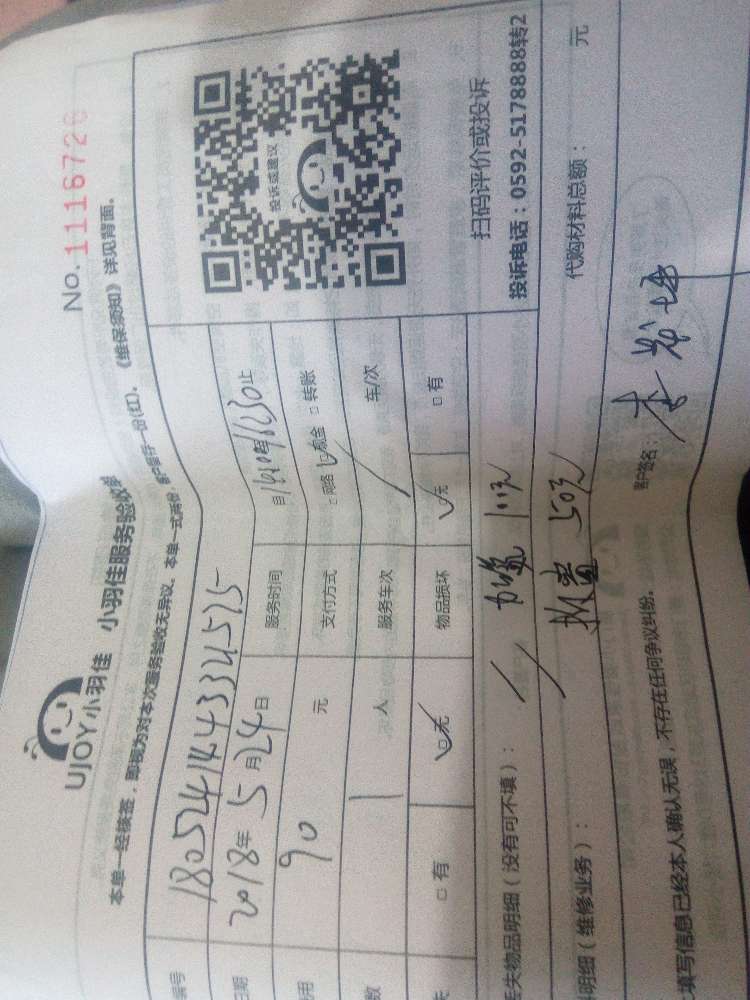 No. 1116726
UJOY小羽佳 小羽佳服务验收单
本单一经核签，即视为对本次服务验收无异议。本单一式两份，客户留存一份(红)。《维保须知》详见背面。
编号 180524144334575
日期 2018年5月24日 服务时间 自 止
用 90 元 支付方式 □网络 □现金 □转账
数 1 人 服务车次 / 车/次
失 □有 □无 物品损坏 □无 □有
投诉或建议
扫码评价或投诉
投诉电话：0592-5178888转2
丢失物品明细（没有可不填）：
明细（维修业务）： 50元 代购材料总额： 元
填写信息已经本人确认无误，不存在任何争议纠纷。 客户签名：